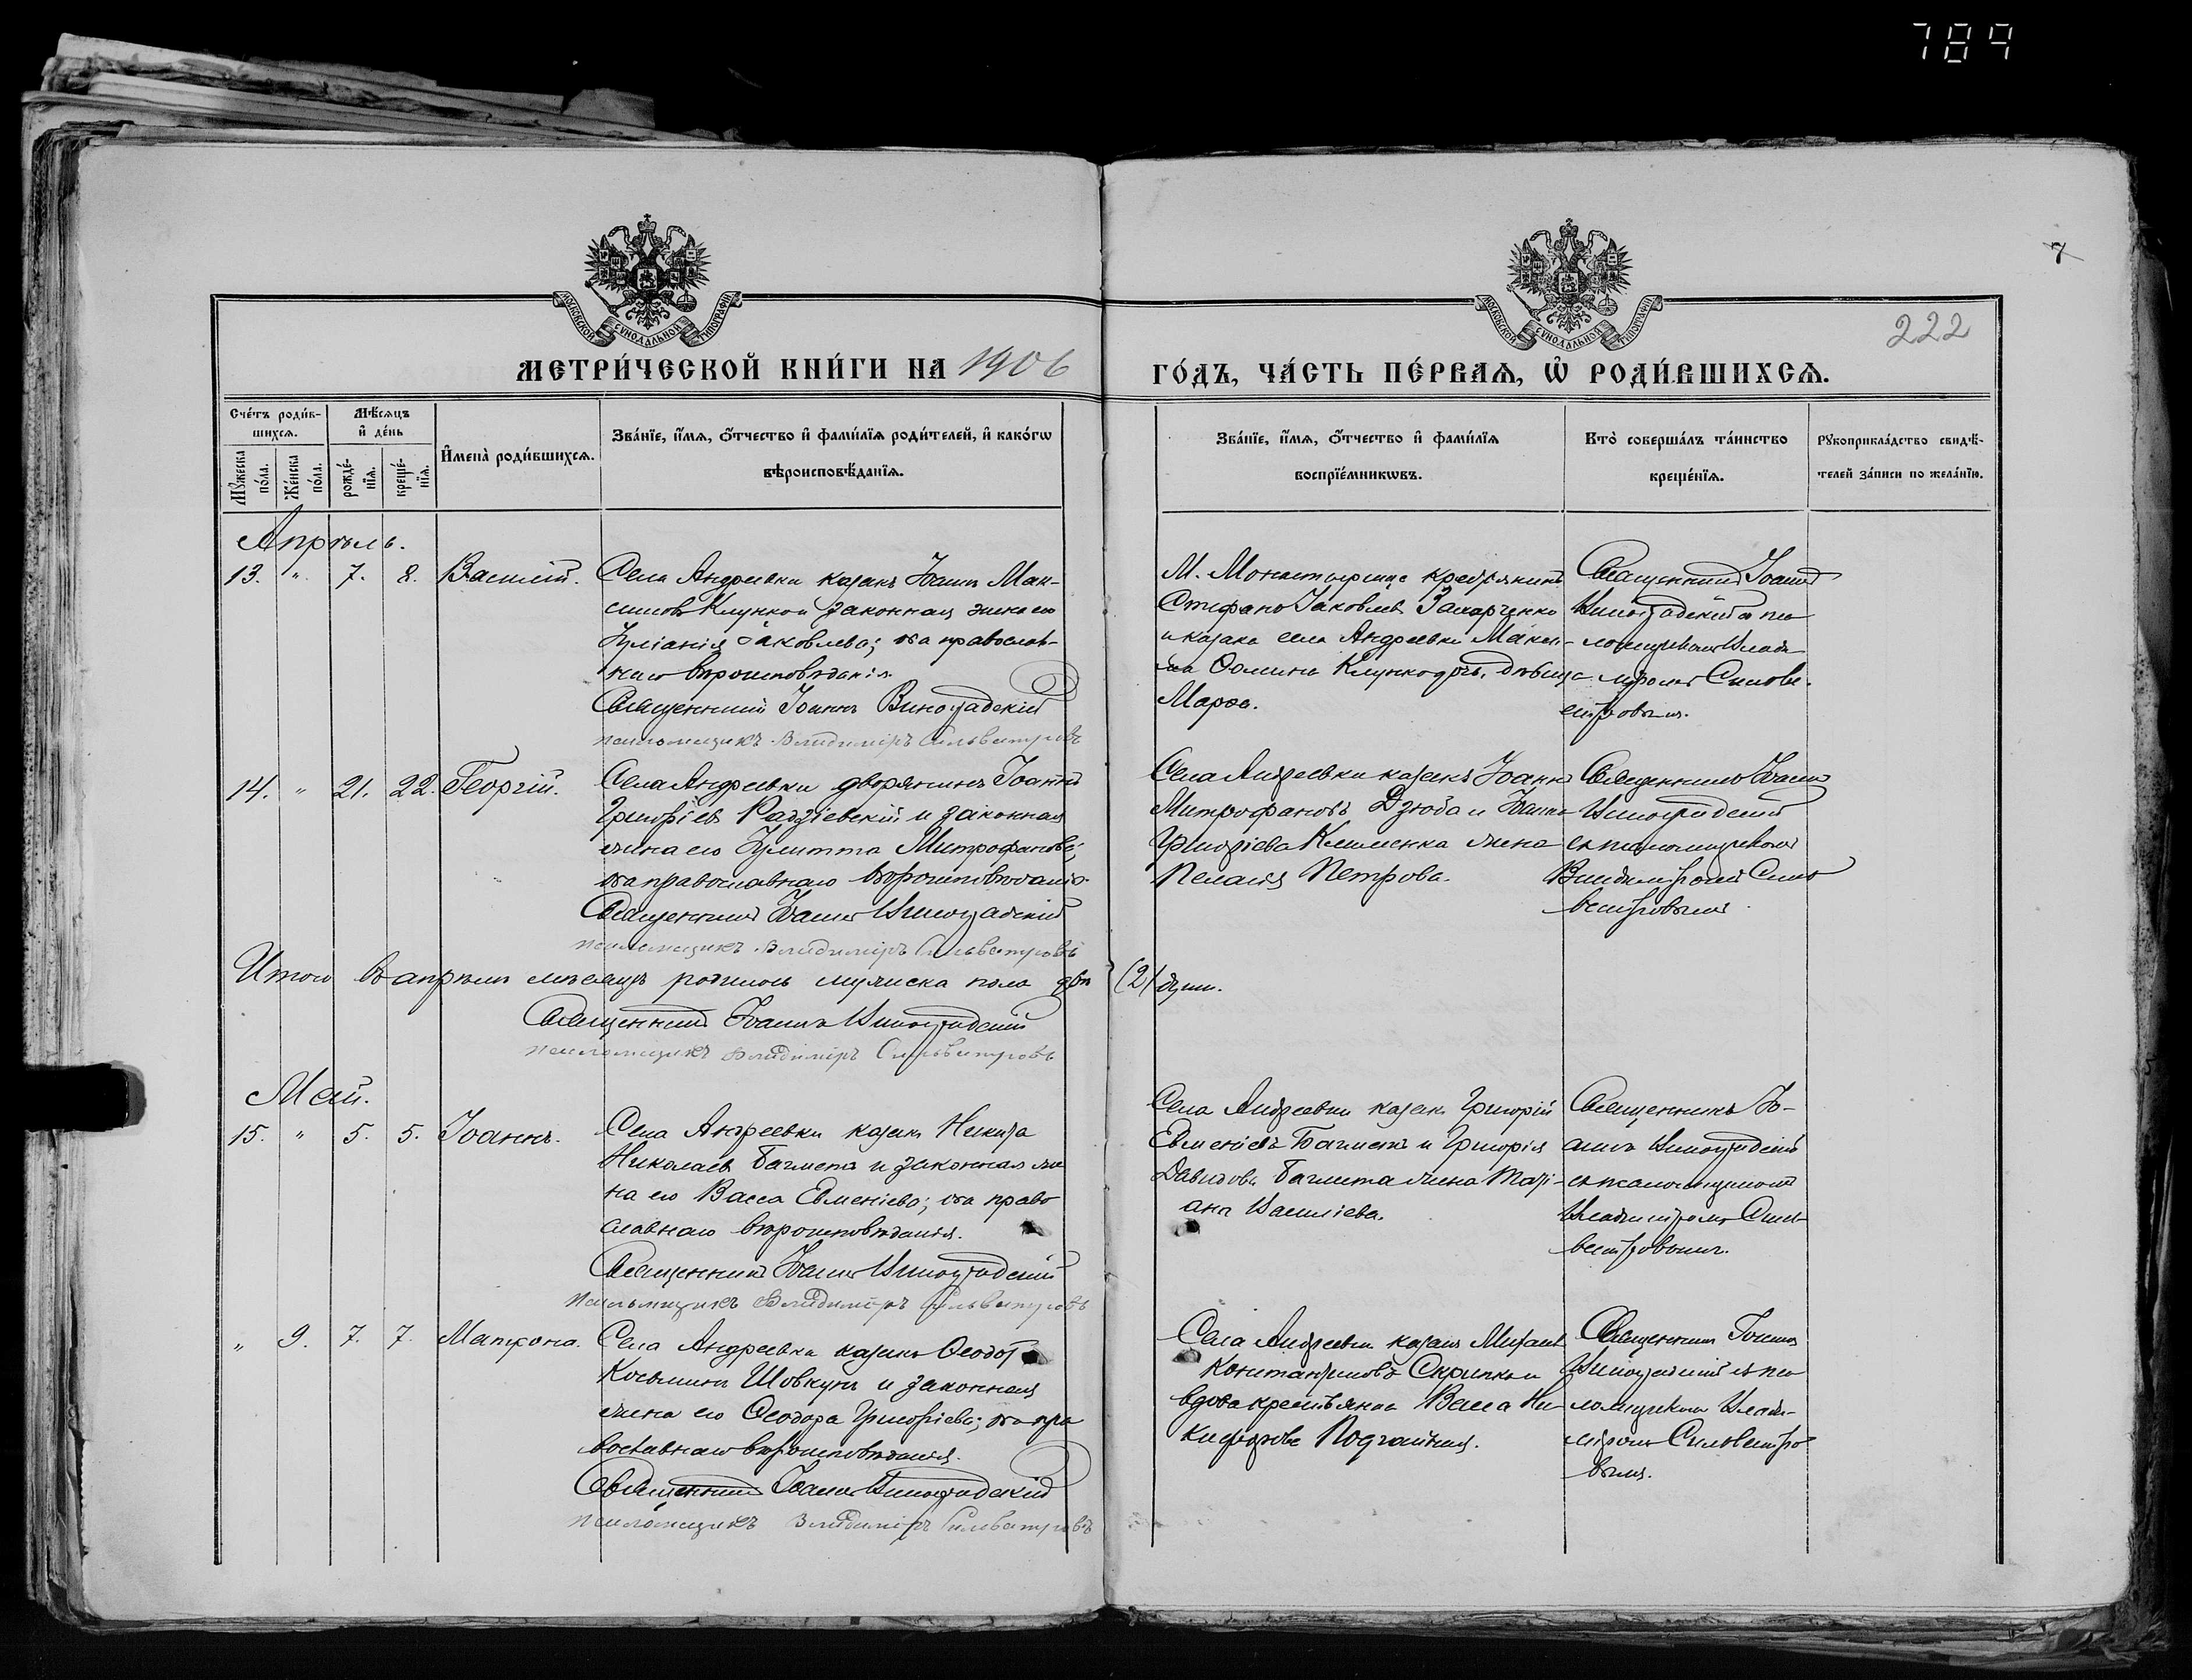 789
7
222
МОСКОВСКОЙ СѴНОДАЛЬНОЙ ТИПОГРАФІИ
МОСКОВСКОЙ СѴНОДАЛЬНОЙ ТИПОГРАФІИ
МЕТРИ́ЧЕСКОЙ КНИ́ГИ НА 1906
ГО́ДЪ, ЧА́СТЬ ПЕ́РВАѦ, Ѡ҆ РОДИ́ВШИХСѦ.
Сче́тъ роди́в-
шихсѧ.
Мѣ́сѧцъ
и҆ де́нь
Мꙋ́жеска
по́ла.
Же́нска
по́ла.
рожде́-
нїѧ.
креще́-
нїѧ.
И҆мена̀ роди́вшихсѧ.
Зва́нїе, и҆́мѧ, ѻ҆́тчество и҆ фами́лїѧ роди́телей, и҆ како́гѡ
вѣроисповѣ́данїѧ.
Зва́нїе, и҆́мѧ, ѻ҆́тчество и҆ фами́лїѧ
воспрїе́мникѡвъ.
Кто̀ соверша́лъ та́инство
креще́нїѧ.
Рꙋкоприкла́дство свидѣ́-
телей за́писи по жела́нїю.
Апрѣль.
13. " 7. 8. Василій.
Села Андреевки казакъ Іоаннъ Мак-
симовъ Клунко и законная жена его
Іуліанія Іаковлева; оба православ-
наго вѣроисповѣданія.
Священникъ Іоаннъ Виноградскій
псаломщикъ Владиміръ Сильвестровъ
М. Монастырище крестьянинъ
Стефанъ Іаковлевъ Захарченко
и казака села Андреевки Макси-
ма Ѳомина Клунко дочь дѣвица
Марѳа.
Священникъ Іоаннъ
Виноградскій съ пса-
ломщикомъ Влади-
міромъ Сильве-
стровымъ.
14. " 21. 22. Георгій.
Села Андреевки дворянинъ Іоаннъ
Григоріевъ Радзіевскій и законная
жена его Іулитта Митрофанова;
оба православнаго вѣроисповѣданія.
Священникъ Іоаннъ Виноградскій
псаломщикъ Владиміръ Сильвестровъ
Села Андреевки казакъ Іоаннъ
Митрофановъ Дзюба и Іоанна
Григоріева Клименка жена
Пелагія Петрова.
Священникъ Іоаннъ
Виноградскій
съ псаломщикомъ
Владиміромъ Силь-
вестровымъ.
Итого въ апрѣлѣ мѣсяцѣ родилось мужеска пола двѣ (2) души.
Священникъ Іоаннъ Виноградскій
псаломщикъ Владиміръ Сильвестровъ
Май.
15. " 5. 5. Іоаннъ.
Села Андреевки казакъ Никита
Николаевъ Багметъ и законная же-
на его Васса Евменіева; оба право
славнаго вѣроисповѣданія.
Священникъ Іоаннъ Виноградскій
псаломщикъ Владиміръ Сильвестровъ
Села Андреевки казакъ Григорій
Евменіевъ Багметъ и Григорія
Давидова Багмета жена Марі-
Василіева.
Священникъ Іо-
аннъ Виноградскій
съ псаломщикомъ
Владиміромъ Силь-
вестровымъ.
" 9. 7. 7. Матрона.
Села Андреевки казакъ Ѳеодотъ
Косьминъ Шовкунъ и законная
жена его Ѳеодора Григоріева; оба пра
вославнаго вѣроисповѣданія.
Священникъ Іоаннъ Виноградскій
псаломщикъ Владиміръ Сильвестровъ
Села Андреевки казакъ Михаилъ
Константиновъ Скрипка и
вдова крестьянка Васса Ни-
кифорова Подгайная.
Священникъ Іоаннъ
Виноградскій съ пса
ломщикомъ Влади-
міромъ Сильвестро
вымъ.